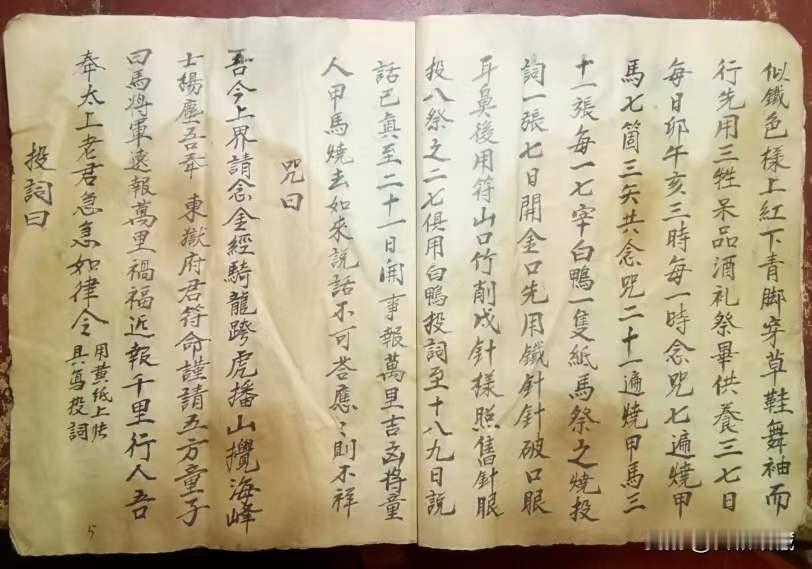 似鐵色樣上紅下青脚穿草鞋舞袖而
行先用三牲呆品酒礼祭畢供養三七日
每日卯午亥三時每一時念咒七遍燒甲
馬七箇三矢共念咒二十一遍燒甲馬三
十一張每一七宰白鴨一隻紙馬祭之燒投
詞一張七日開金口先用鐵針針破口眼
耳鼻後用符山口竹削成針樣照舊針眼
投入祭之二七俱用白鴨投詞至十八九日説
話已真至二十一日開事報萬里吉凶将童
人甲馬燒去如來説話不可答應〻則不祥
咒曰
吾今上界請念金經騎龍跨虎播山攪海峰
士揚塵吾奉 東獄府君符命謹請五方童子
曰馬將軍遠報萬里禍福近報千里行人吾
奉太上老君急急如律令 用黄紙上
具寫投詞
投詞曰
5